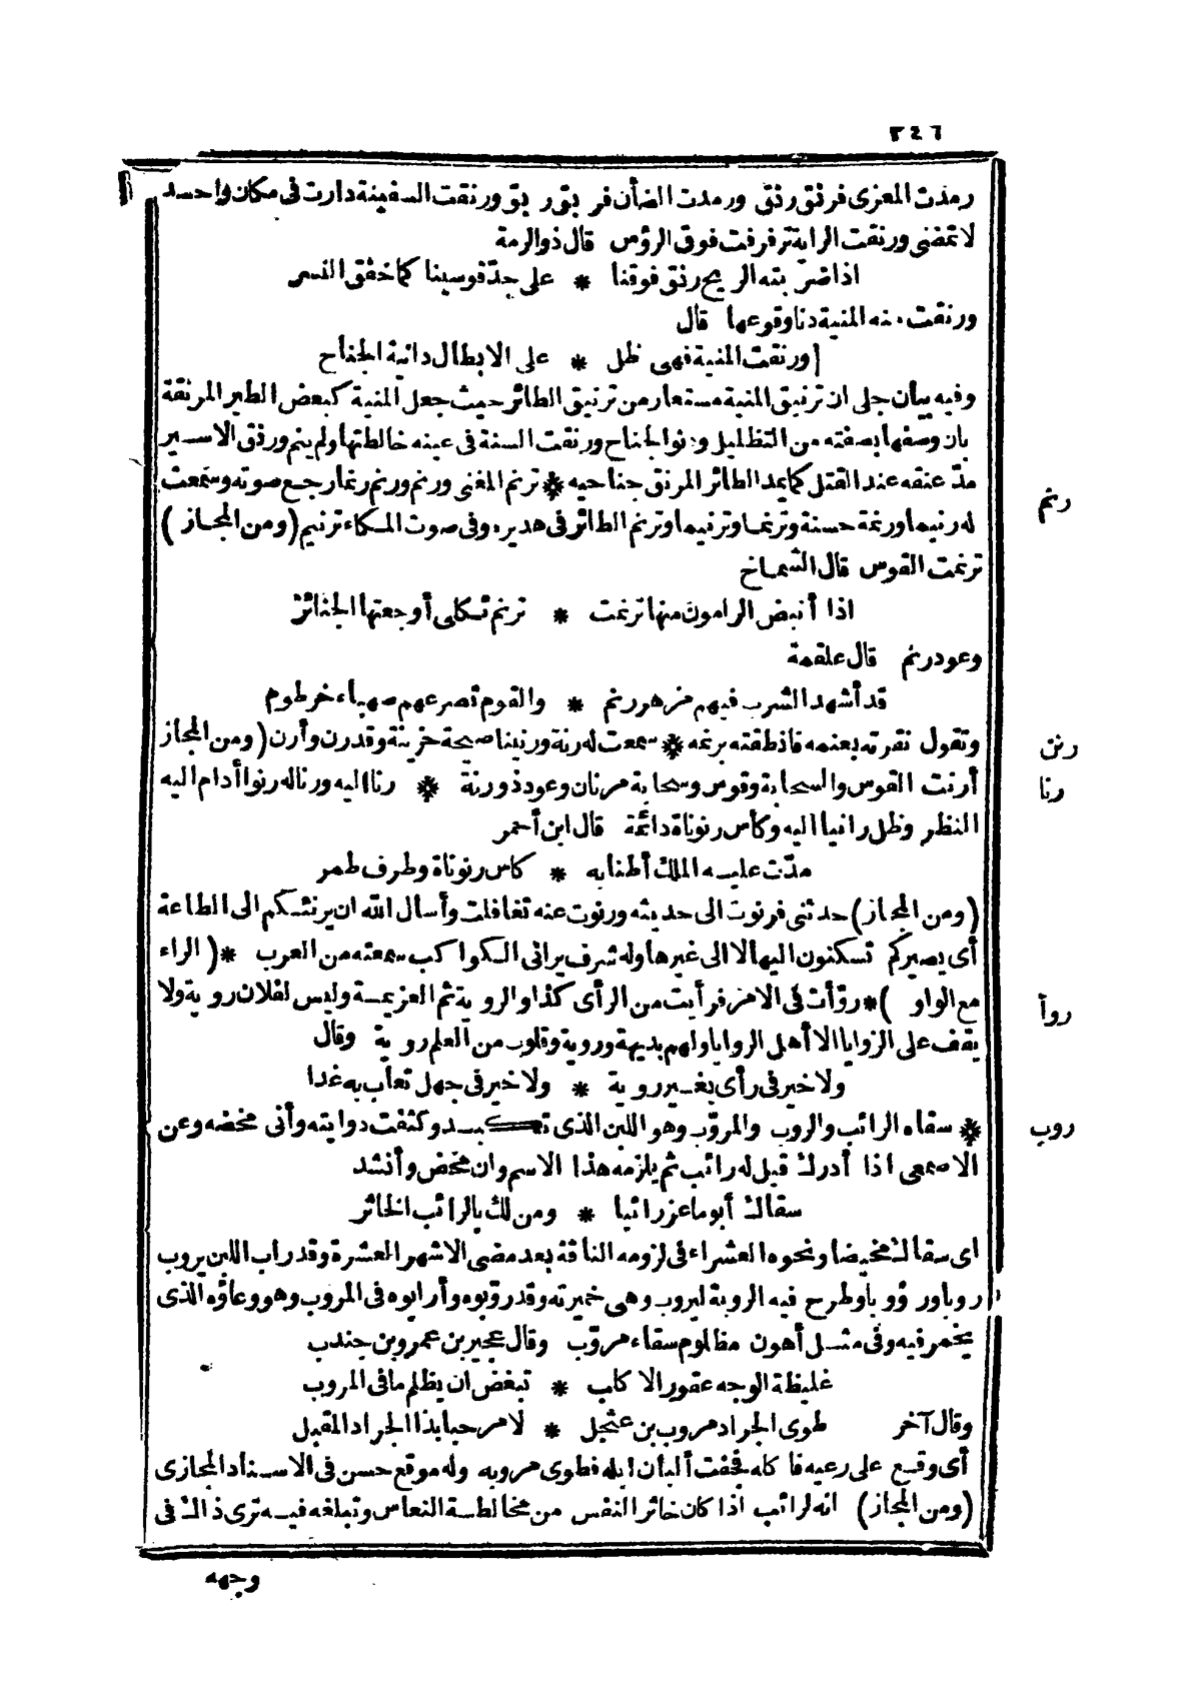 ٢٤٦
رمدت المعزى فرنق رنق ورمدت الضأن فربق ربق ورنقت السفينة دارت فى مكان واحد
لا تمضى ورنقت الراية ترفرفت فوق الرؤس قال ذو الرمة
اذا ضربته الريح رنق فوقنا * على حدّ قوسينا كما خفق النسر
ورنقت منه المنية دنا وقوعها قال
ورنقت المنية فهى ظل * على الابطال دانية الجناح
وفيه بيان جلى ان ترنيق المنية مستعار من ترنيق الطائر حيث جعل المنية كبعض الطير المرنقة
بان وصفها بصفته من التظليل ودنو الجناح ورنقت السنة فى عينه خالطتها ولم ينم ورنق الاسير
مدّ عنقه عند القتل كما يمد الطائر المرنق جناحيه * ترنم المغنى ورنم ورنم رنما رجع صوته وسمعت
رنم
له رنيما ورنمة حسنة وترنما وترنيما وترنم الطائر فى هديره وفى صوت المكاء ترنيم (ومن المجاز)
ترنمت القوس قال الشماخ
اذا أنبض الرامون منها ترنمت * ترنم ثكلى أوجعتها الجنائز
وعود رنم قال علقمة
قد أشهد الشرب فيهم مزهر رنم * والقوم تصرعهم صهباء خرطوم
وتقول نقرته بعنمه فانطقته برنمه * سمعت له رنة ورنينا صيحة حزينة وقد رن وأرن (ومن المجاز
رنن
أرنت القوس والسحابة وقوس وسحابة مرنان وعود ذو رنة * رنا اليه ورنا له رنوا أدام اليه
رنا
النظر وظل رانيا اليه وكأس رنوناة دائمة قال ابن أحمر
مدّت عليه الملك أطنابه * كاس رنوناة وطرف طمر
(ومن المجاز) حدثنى فرنوت الى حديثه ورنوت عنه تغافلت وأسأل الله ان يرنثكم الى الطاعة
أى يصيركم تسكنون اليها لا الى غيرها وله شرف يرانى الكواكب سمعته من العرب *(الراء
مع الواو)* روّأت فى الامر فرأيت من الرأى كذا والروية ثم العزيمة وليس لفلان روية ولا
روأ
يقف على الزوايا الا أهل الروايا ولهم بديهة وروية وقلوب من العلم روية وقال
ولا خير فى رأى بغير روية * ولا خير فى جهل تعاب به غدا
* سقاه الرائب والروب والمروّب وهو اللبن الذى تكبد وكثفت دوايته وأنى مخضه وعن
روب
الاصمعى اذا أدرك قيل له رائب ثم يلزمه هذا الاسم وان مخض وأنشد
سقاك أبو ماعز رائبا * ومن لك بالرائب الخاثر
اى سقاك مخيضا ونحوه العشراء فى لزومه الناقة بعد مضى الاشهر العشرة وقد راب اللبن يروب
روبا ورؤوبا وطرح فيه الروبة ليروب وهى خميرته وقد روّبوه وأرابوه فى المروب وهو وعاؤه الذى
يخمر فيه وفى مثل أهون مظلوم سقاء مروّب وقال عجير بن عمرو بن جندب
غليظة الوجه عقور الاكلب * تبغض ان يظلم ما فى المروب
وقال آخر طوى الجراد مروب بن عثجل * لا مرحبا بذا الجراد المقبل
أى وقع على رعيه فاكله فجفت ألبان ابله فطوى مروبه وله موقع حسن فى الاسناد المجازى
(ومن المجاز) انه لرائب اذا كان خاثر النفس من مخالطة النعاس وتبلغه فيه ترى ذاك فى
وجهه